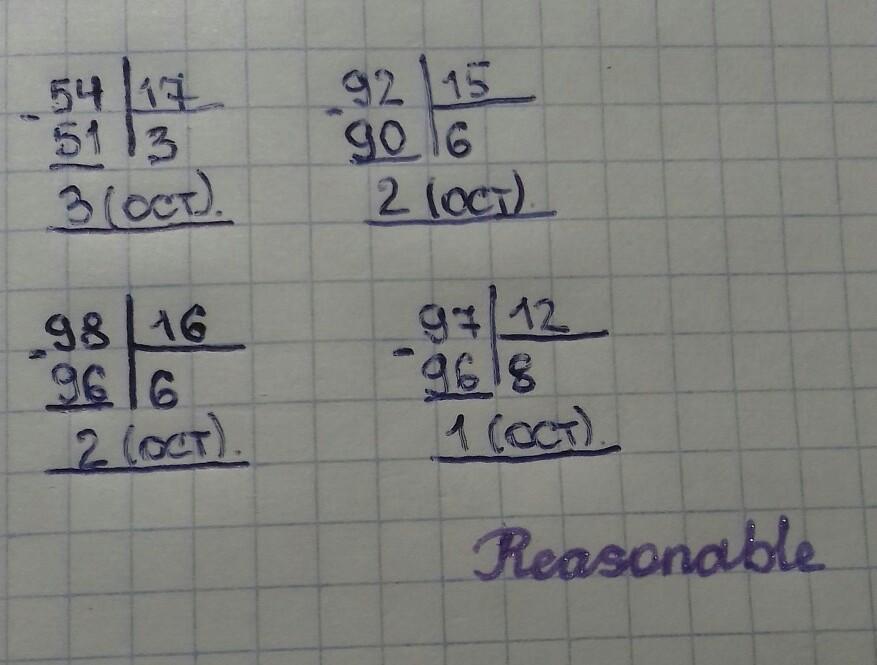 -54 17
51 3
3 (ост).
-92 15
90 6
2 (ост).
-98 16
96 6
2 (ост).
-97 12
96 8
1 (ост).
Reasonable